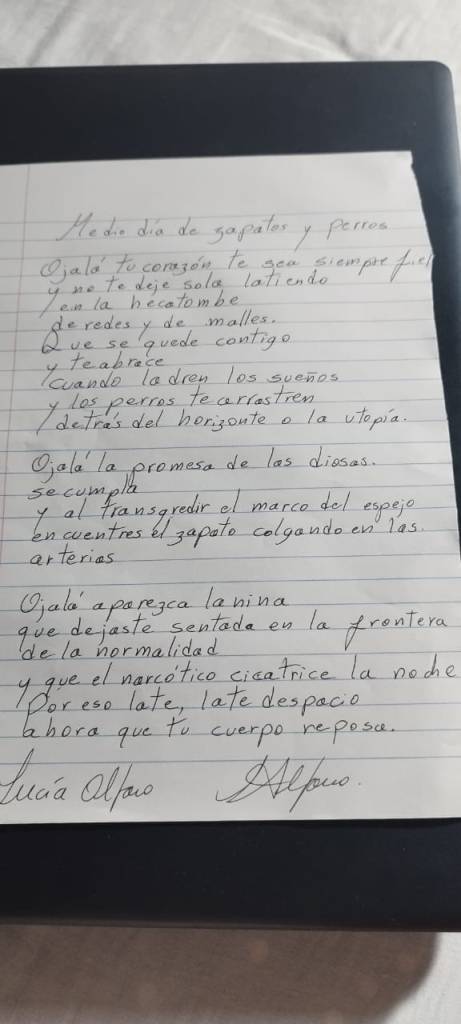 Medio día de zapatos y perros
Ojalá tu corazón te sea siempre fiel
y no te deje sola latiendo
en la hecatombe
de redes y de malles.
Que se quede contigo
y te abrace
cuando ladren los sueños
y los perros te arrastren
detrás del horizonte o la utopía.
Ojalá la promesa de las diosas.
se cumpla
y al transgredir el marco del espejo
encuentres el zapato colgando en las.
arterias
Ojalá aparezca la nina
que dejaste sentada en la frontera
de la normalidad
y que el narcótico cicatrice la noche
Por eso late, late despacio
ahora que tu cuerpo reposa.
Lucía Alfaro